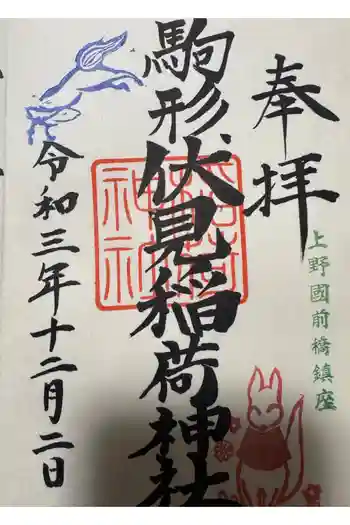 奉拝
上野國前橋鎮座
駒形伏見稲荷神社
稲荷神社
令和三年十二月二日